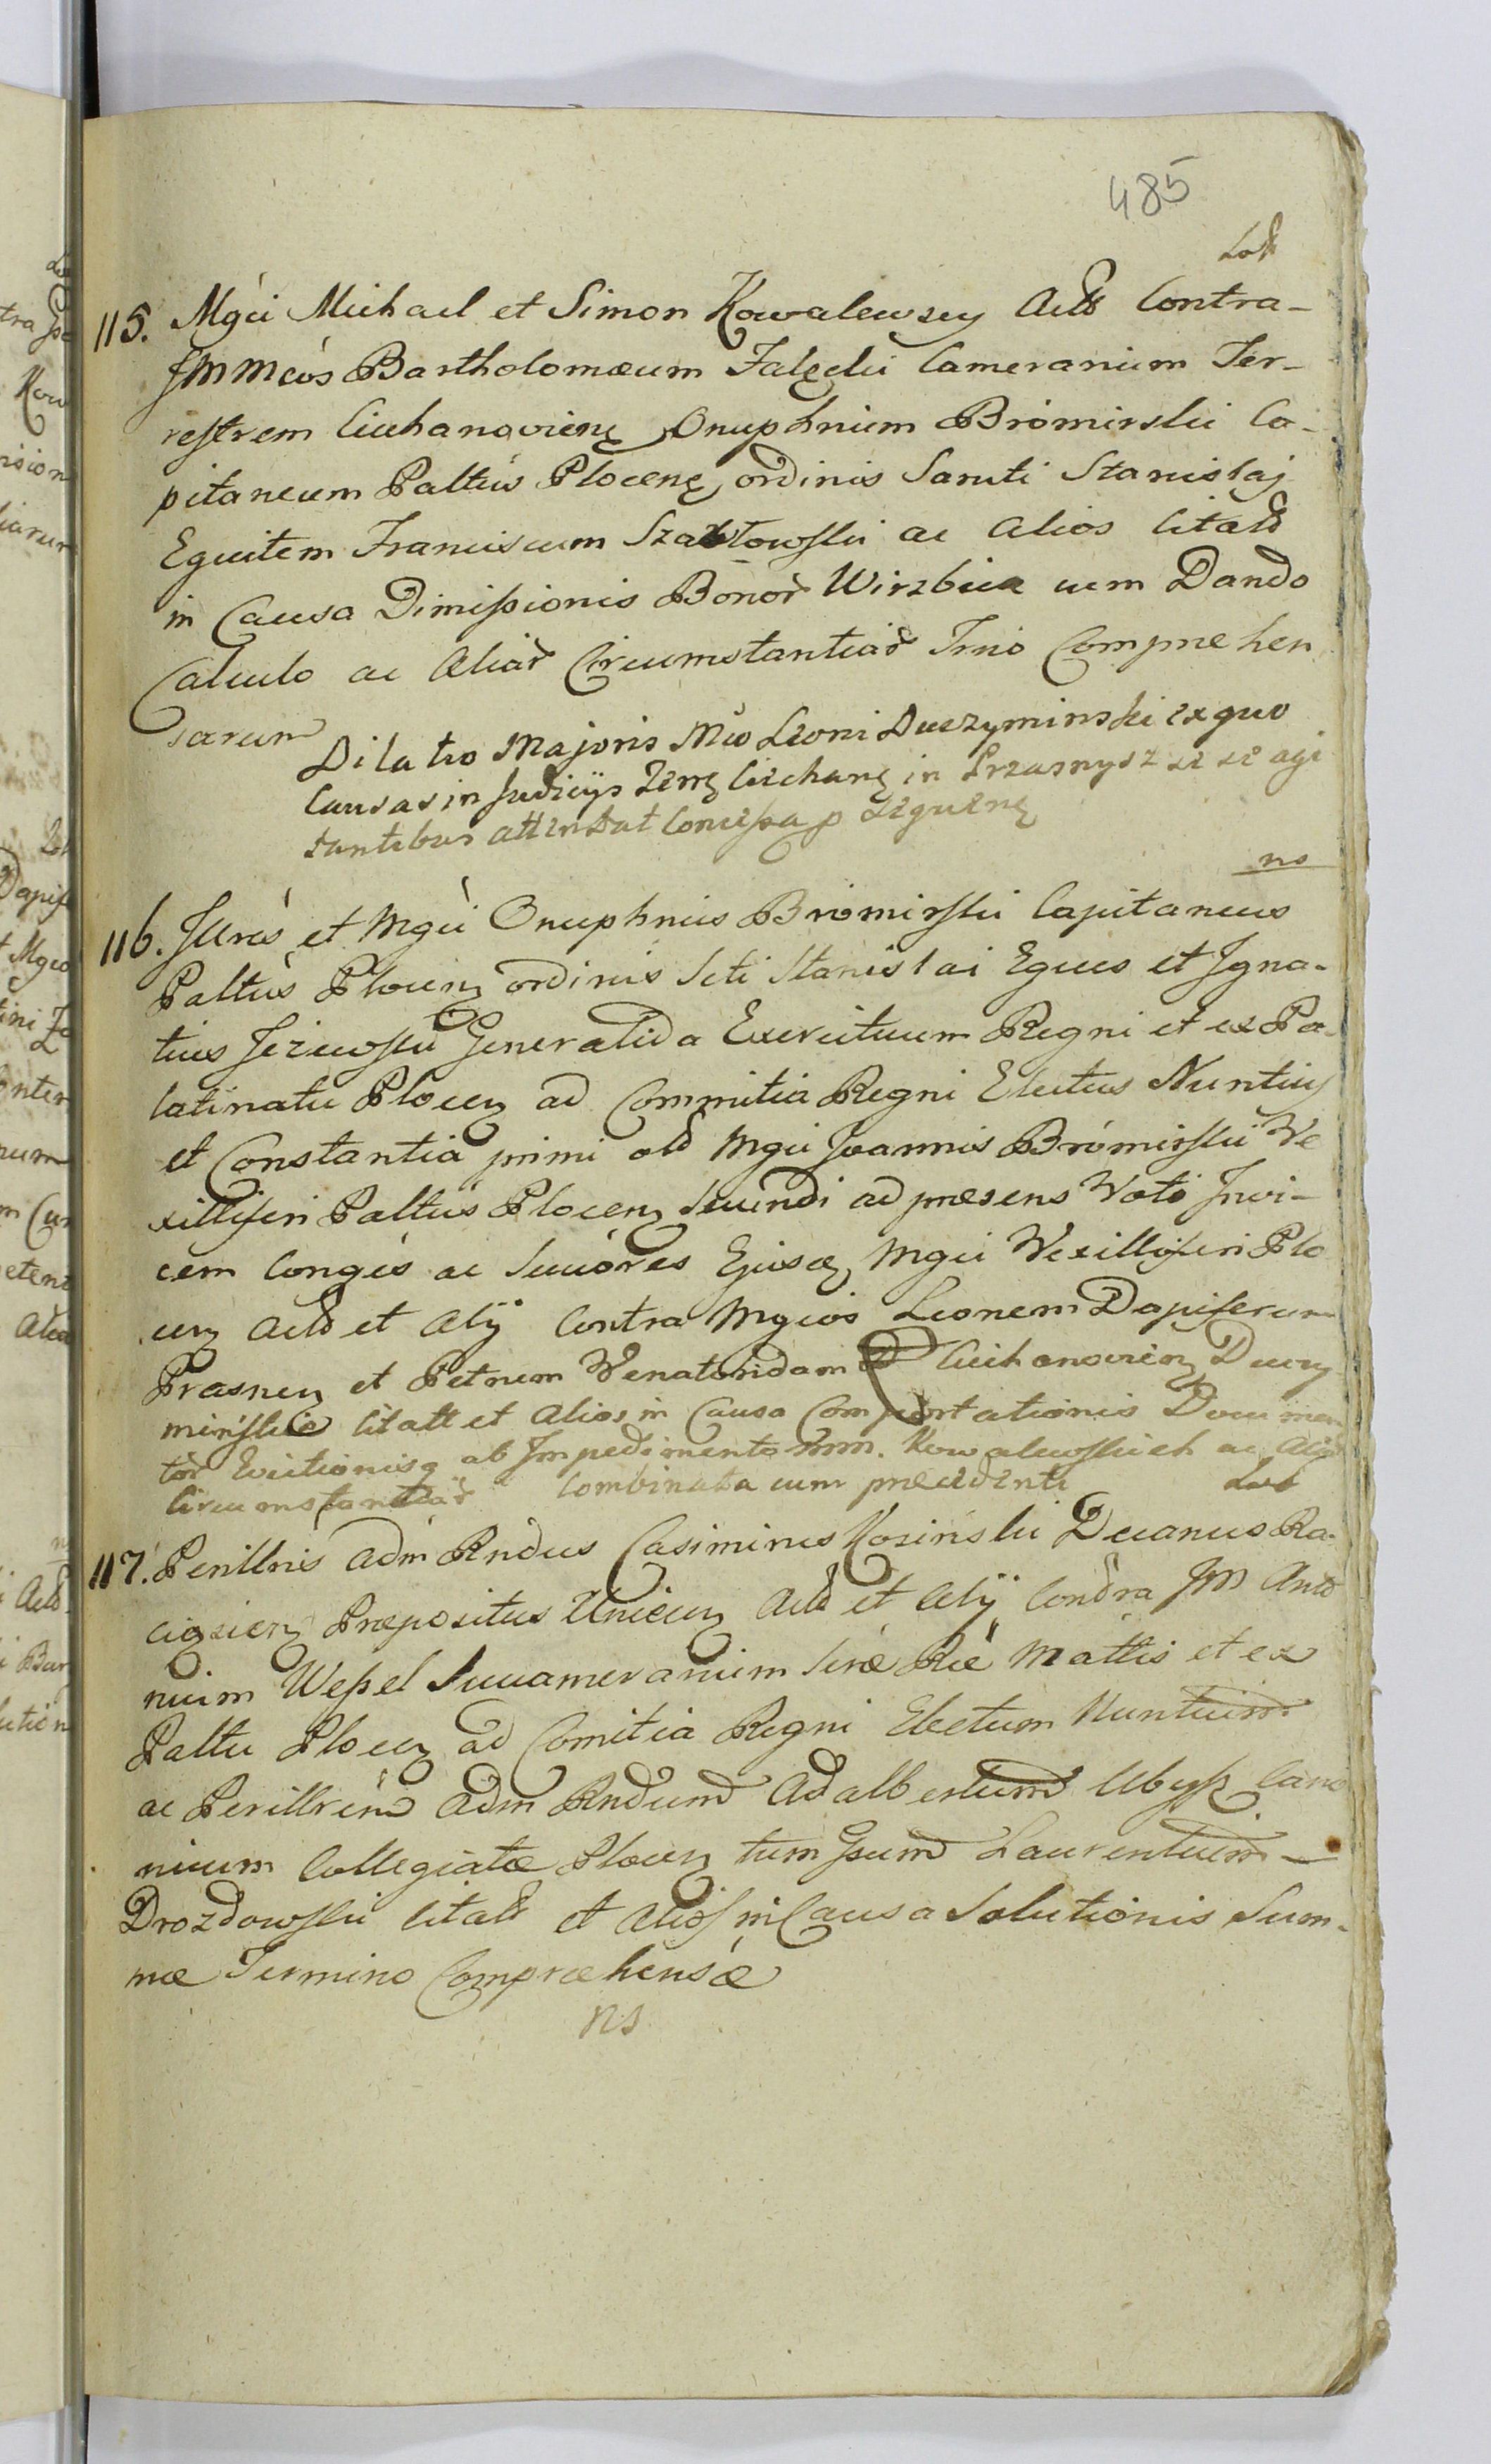 485
Lok
115. Mgci Michael et Simon Kowalewscy Actt Contra-
JMMcos Bartholomæum Załęcki Camerarium Ter-
restrem Ciechanoviens Onuphrium Bromirski Ca-
pitaneum Paltus Plocens ordinis Sancti Stanislaj
Equitem Franciscum Szabłowski ac Alios Citatt
in Causa Dimissionis Bonor Wirzbica cum Dando
Calculo ac Aliar Circumstantiar Trno Comprehen
sarum
Dilatio Majoris Mco Leoni Duczyminski ex quo
Causas in Judicijs Terr Ciechan in Przasnysz se se agi
tantibus attentat Concessa p Sequens
ns
116. Jllres et Mgci Onuphrius Bromirski Capitaneus
Paltus Plocens ordinis Scti Stanislai Eques et Jgna-
tius Jezewski Generalida Exercituum Regni et ex Pa-
latinatu Plocens ad Commitia Regni Electus Nuntius
et Constantia primi olt Mgci Joannis Bromirski Ve
xilliferi Paltus Plocens Secundi ad præsens Voto Jnvi-
cem Conges ac Succores Ejusq Mgci Vexilliferi Plo
cens Actt et Alij Contra Mgcos Leonem Dapiferum
Prasnens et Petrum Venatoridam Ciechanoviens Duczy
minskie Citatt et Alios in Causa Comportationis Documen
tor Evictionisq ab Jmpedimento MM. Kowalewskich ac Aliar
Circumstantiar Combinata cum præcedenti
Lok
117. Perillris Adm Rndus Casimirus Kosinski Decanus Ra-
ciąziens Præpositus Uniecens Actt et Alij Contra JM Anto
nium Wessel Succamerarium Sacræ Ræ Mattis et ex
Paltu Plocens ad Comitia Regni Electum Nuntium
ac Perillrem Adm Rndum Adalbertum Ubysz Cano
nicum Collegiatæ Plocens tum Gsum Laurentium
Drozdowski Citatt et Alios in Causa Solutionis Sum-
mæ Termino Comprehensæ
ns